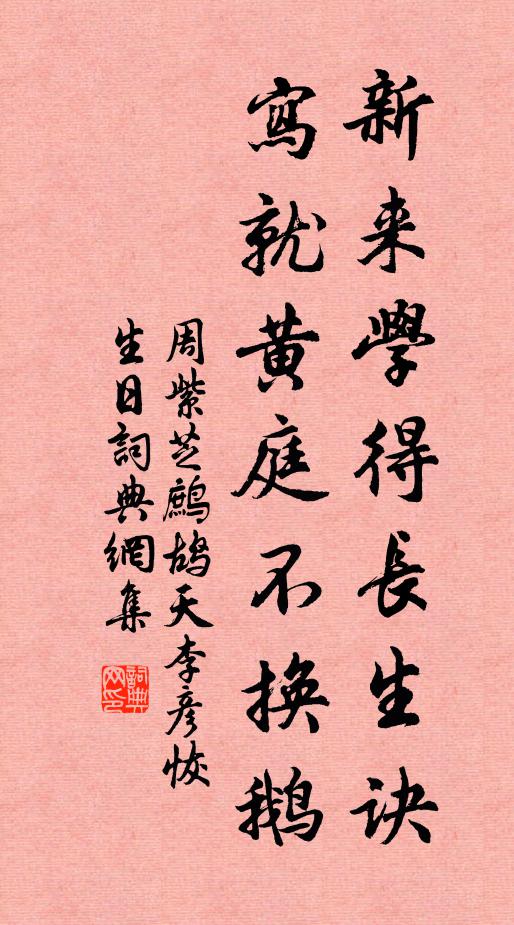 新来學得長生诀
寫就黄庭不换鵝
周紫芝鷓鴣天李彦恢
生日詞典網集
詞典
网印